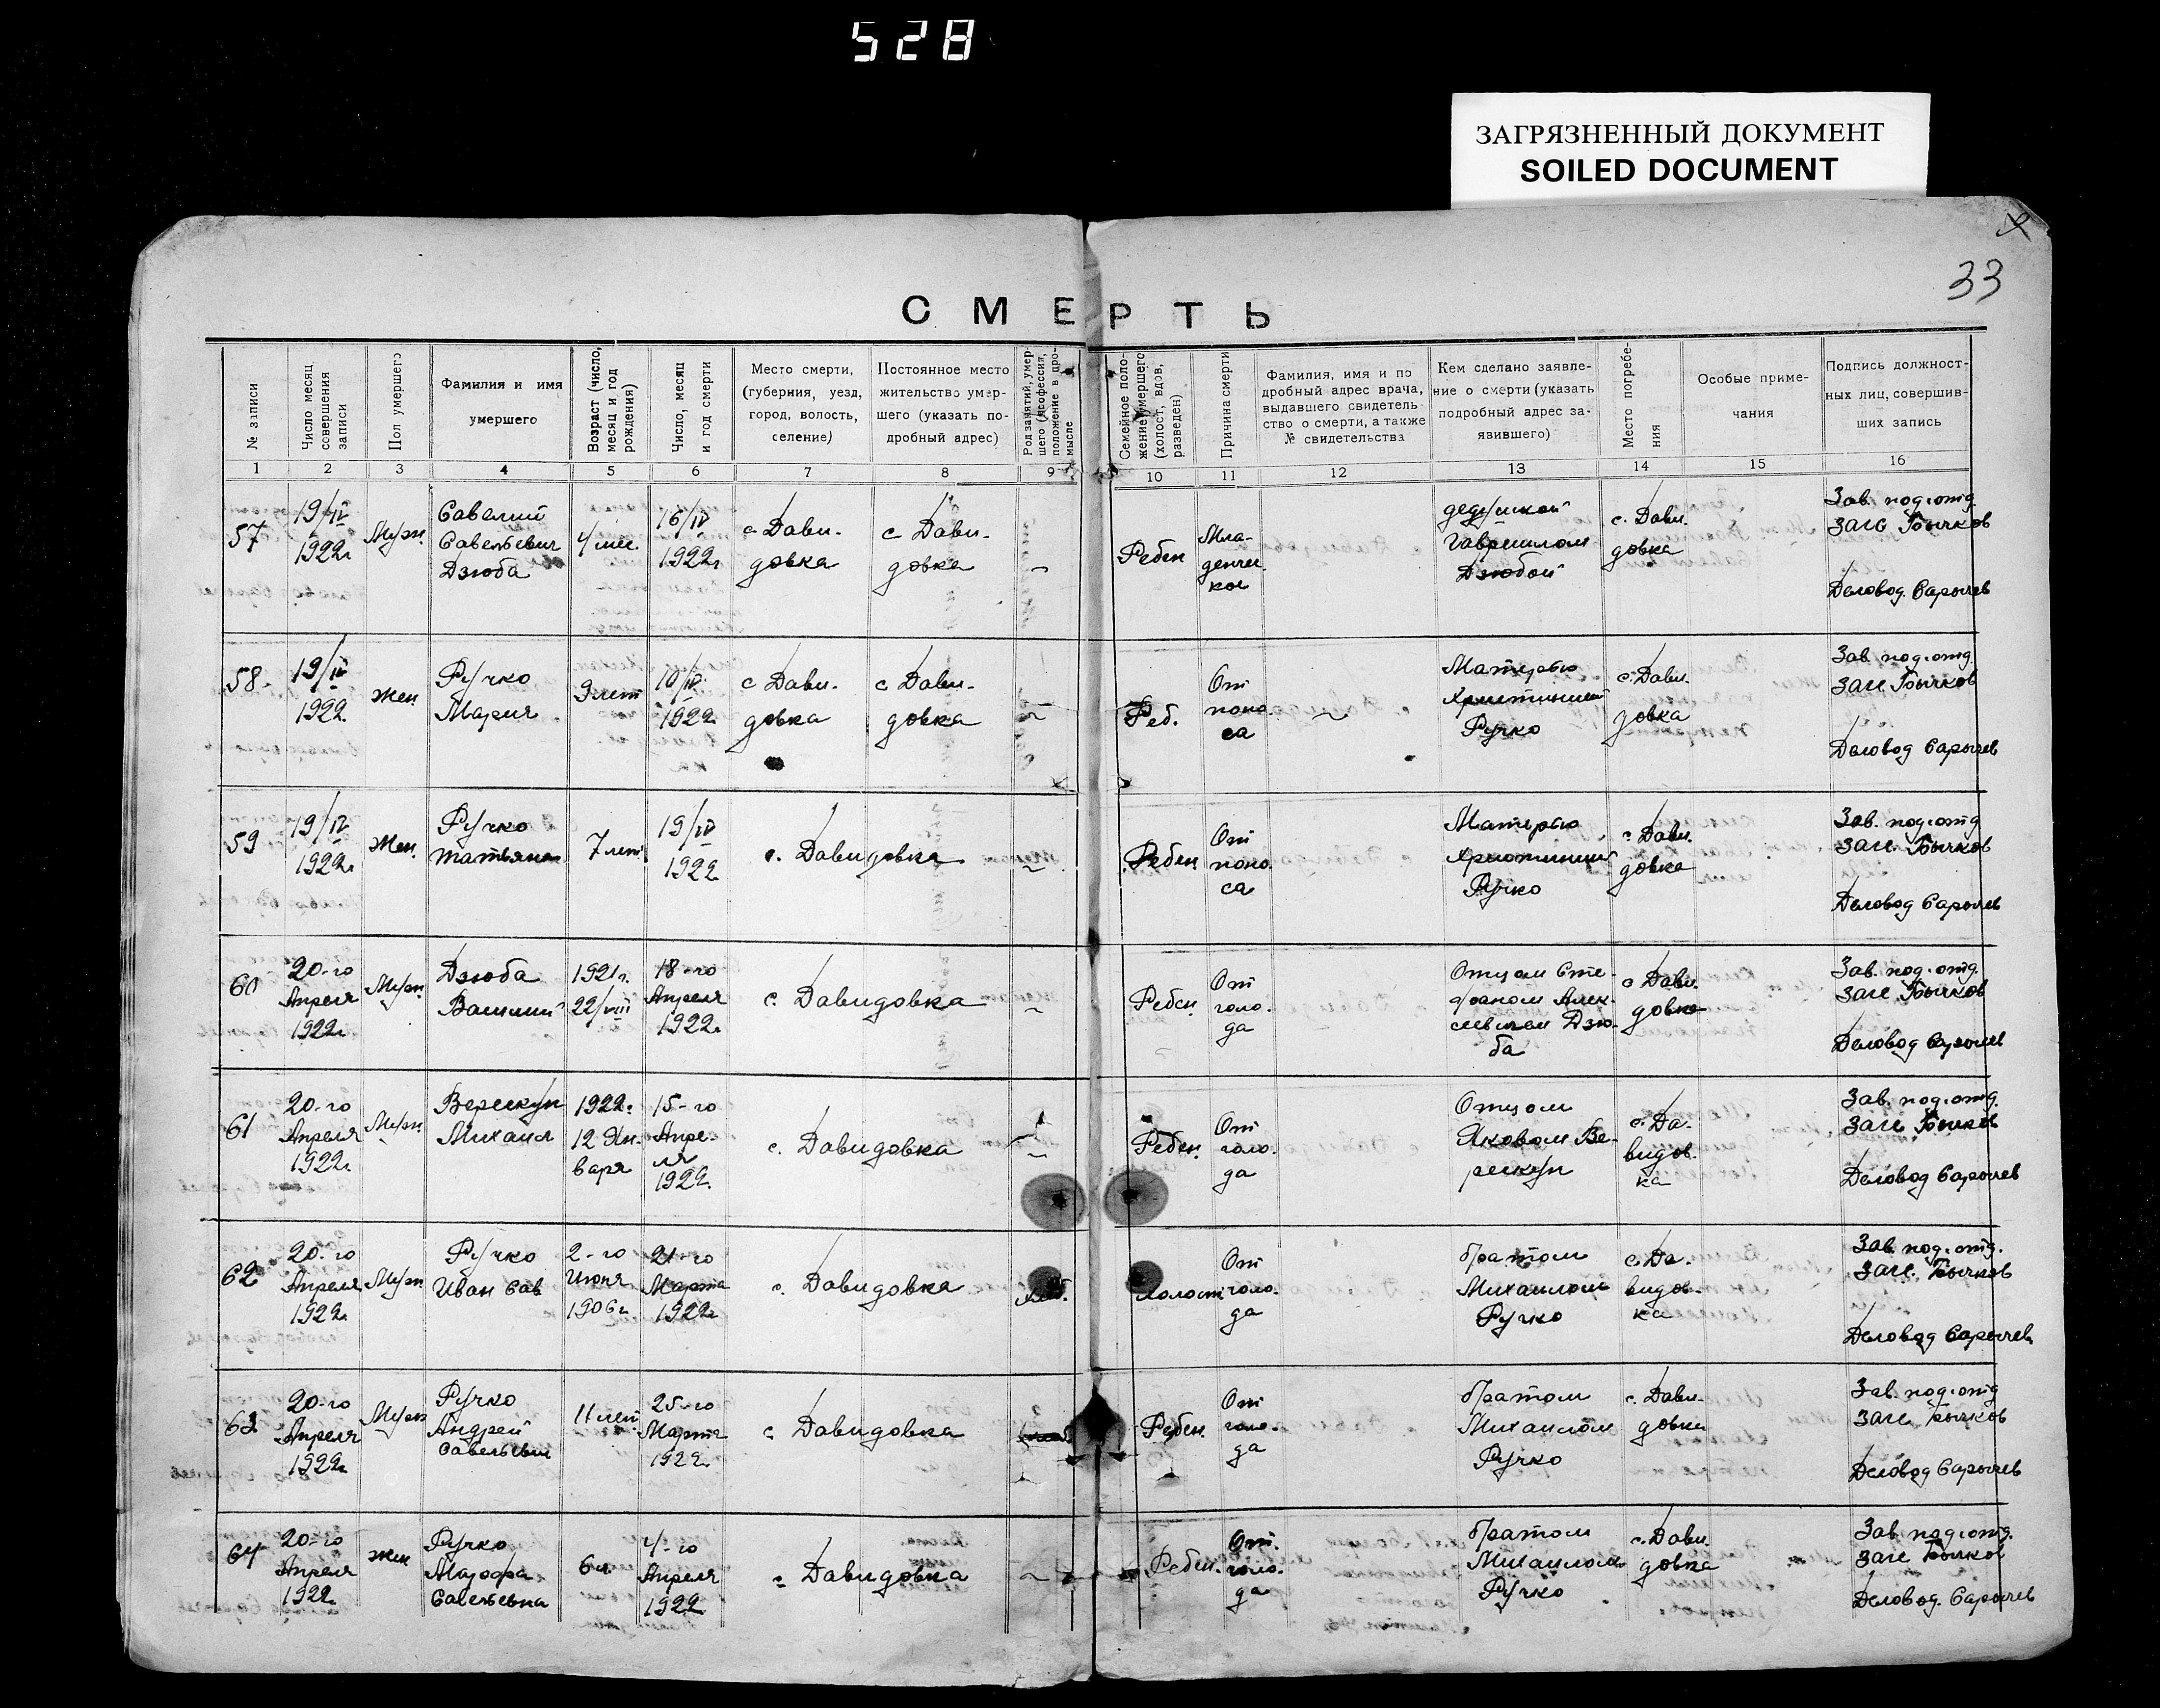 528
ЗАГРЯЗНЕННЫЙ ДОКУМЕНТ
SOILED DOCUMENT
33
СМЕРТЬ
№ записи
Число месяц
совершения
записи
Пол умершего
Фамилия и имя
умершего
Возраст (число,
месяц и год
рождения)
Число, месяц
и год смерти
Место смерти,
(губерния, уезд,
город, волость,
селение)
Постоянное место
жительство умер-
шего (указать по-
дробный адрес)
Род занятий, умер-
шего (профессия,
положение в про-
мысле
Семейное поло-
жение умершего
(холост, вдов,
разведен)
Причина смерти
Фамилия, имя и по
дробный адрес врача,
выдавшего свидетель
ство о смерти, а также
№ свидетельства
Кем сделано заявле-
ние о смерти (указать
подробный адрес за-
явившего)
Место погребе-
ния
Особые приме-
чания
Подпись должност-
ных лиц, совершив-
ших запись
1 2 3 4 5 6 7 8 9 10 11 12 13 14 15 16
57
19/IV
1922г
Муж.
Савелий
Савельевич
Дзюба
4 мес.
16/IV
1922г
с Дави-
довка
с Дави-
довка
Ребен
Мла-
денчес
кое
дедушкой
Гавриилом
Дзюбой
с. Дави.
довка
Зав. под.отд.
загс Бычков
Деловод. Сарычев
58
19/IV
1922.
Жен.
Ручко
Мария
9 лет
10/IV
1922
с Дави-
довка
с Дави-
довка
Реб.
От
поно.
са
Матерью
Христиньей
Ручко
с. Дави.
довка
Зав. под.отд.
загс Бычков
Деловод Сарычев
59
19/IV
1922г
Жен.
Ручко
Татьяна
7 лет
19/IV
1922
с. Давидовка
Ребен
От
поно.
са
Матерью
Христиньей
Ручко
с. Дави.
довка
Зав. под.отд
загс. Бычков
Деловод Сарычев
60
20-го
Апреля
1922г
Муж.
Дзюба
Василий
1921г.
22/VIII
18-го
Апреля
1922г
с. Давидовка
Ребен
От
голо.
да
Отцом Сте-
фаном Алек-
сеевичем Дзю-
ба
с Дави.
довка
Зав. под.отд.
загс Бычков
Деловод Сарычев
61
20-го
Апреля
1922г.
Муж.
Верескун
Михаил
1922г
12 Ян-
варя
15-го
Апре-
ля
1922.
с. Давидовка
Ребен.
От
голо.
да
Отцом
Яковом Ве-
рескун
с. Да-
видов-
ка
Зав. под.отд.
загс Бычков
Деловод Сарычев
62
20-го
Апреля
1922
Муж
Ручко
Иван Сав
2-го
Июня
1906г
21-го
Марта
1922г
с. Давидовка
Холост
От
голо.
да
братом
Михаилом
Ручко
с. Да-
видов-
ка
Зав. под.отд.
загс. Бычков
Деловод Сарычев
63
20-го
Апреля
1922г
Муж
Ручко
Андрей
Савельевич
11 лет
25-го
Марта
1922.
с Давидовка
Ребен.
От
голо-
да
братом
Михаилом
Ручко
с. Дави-
довка
Зав. под.отд
загс Бычков
Деловод Сарычев
64
20-го
Апреля
1922
жен
Ручко
Марфа
Савельевна
6 л
4-го
Апреля
1922
с Давидовка
Ребен.
От.
голо.
да
братом
Михаилом
Ручко
с. Дави.
довка
Зав. под.отд.
загс Бычков
Деловод. Сарычев